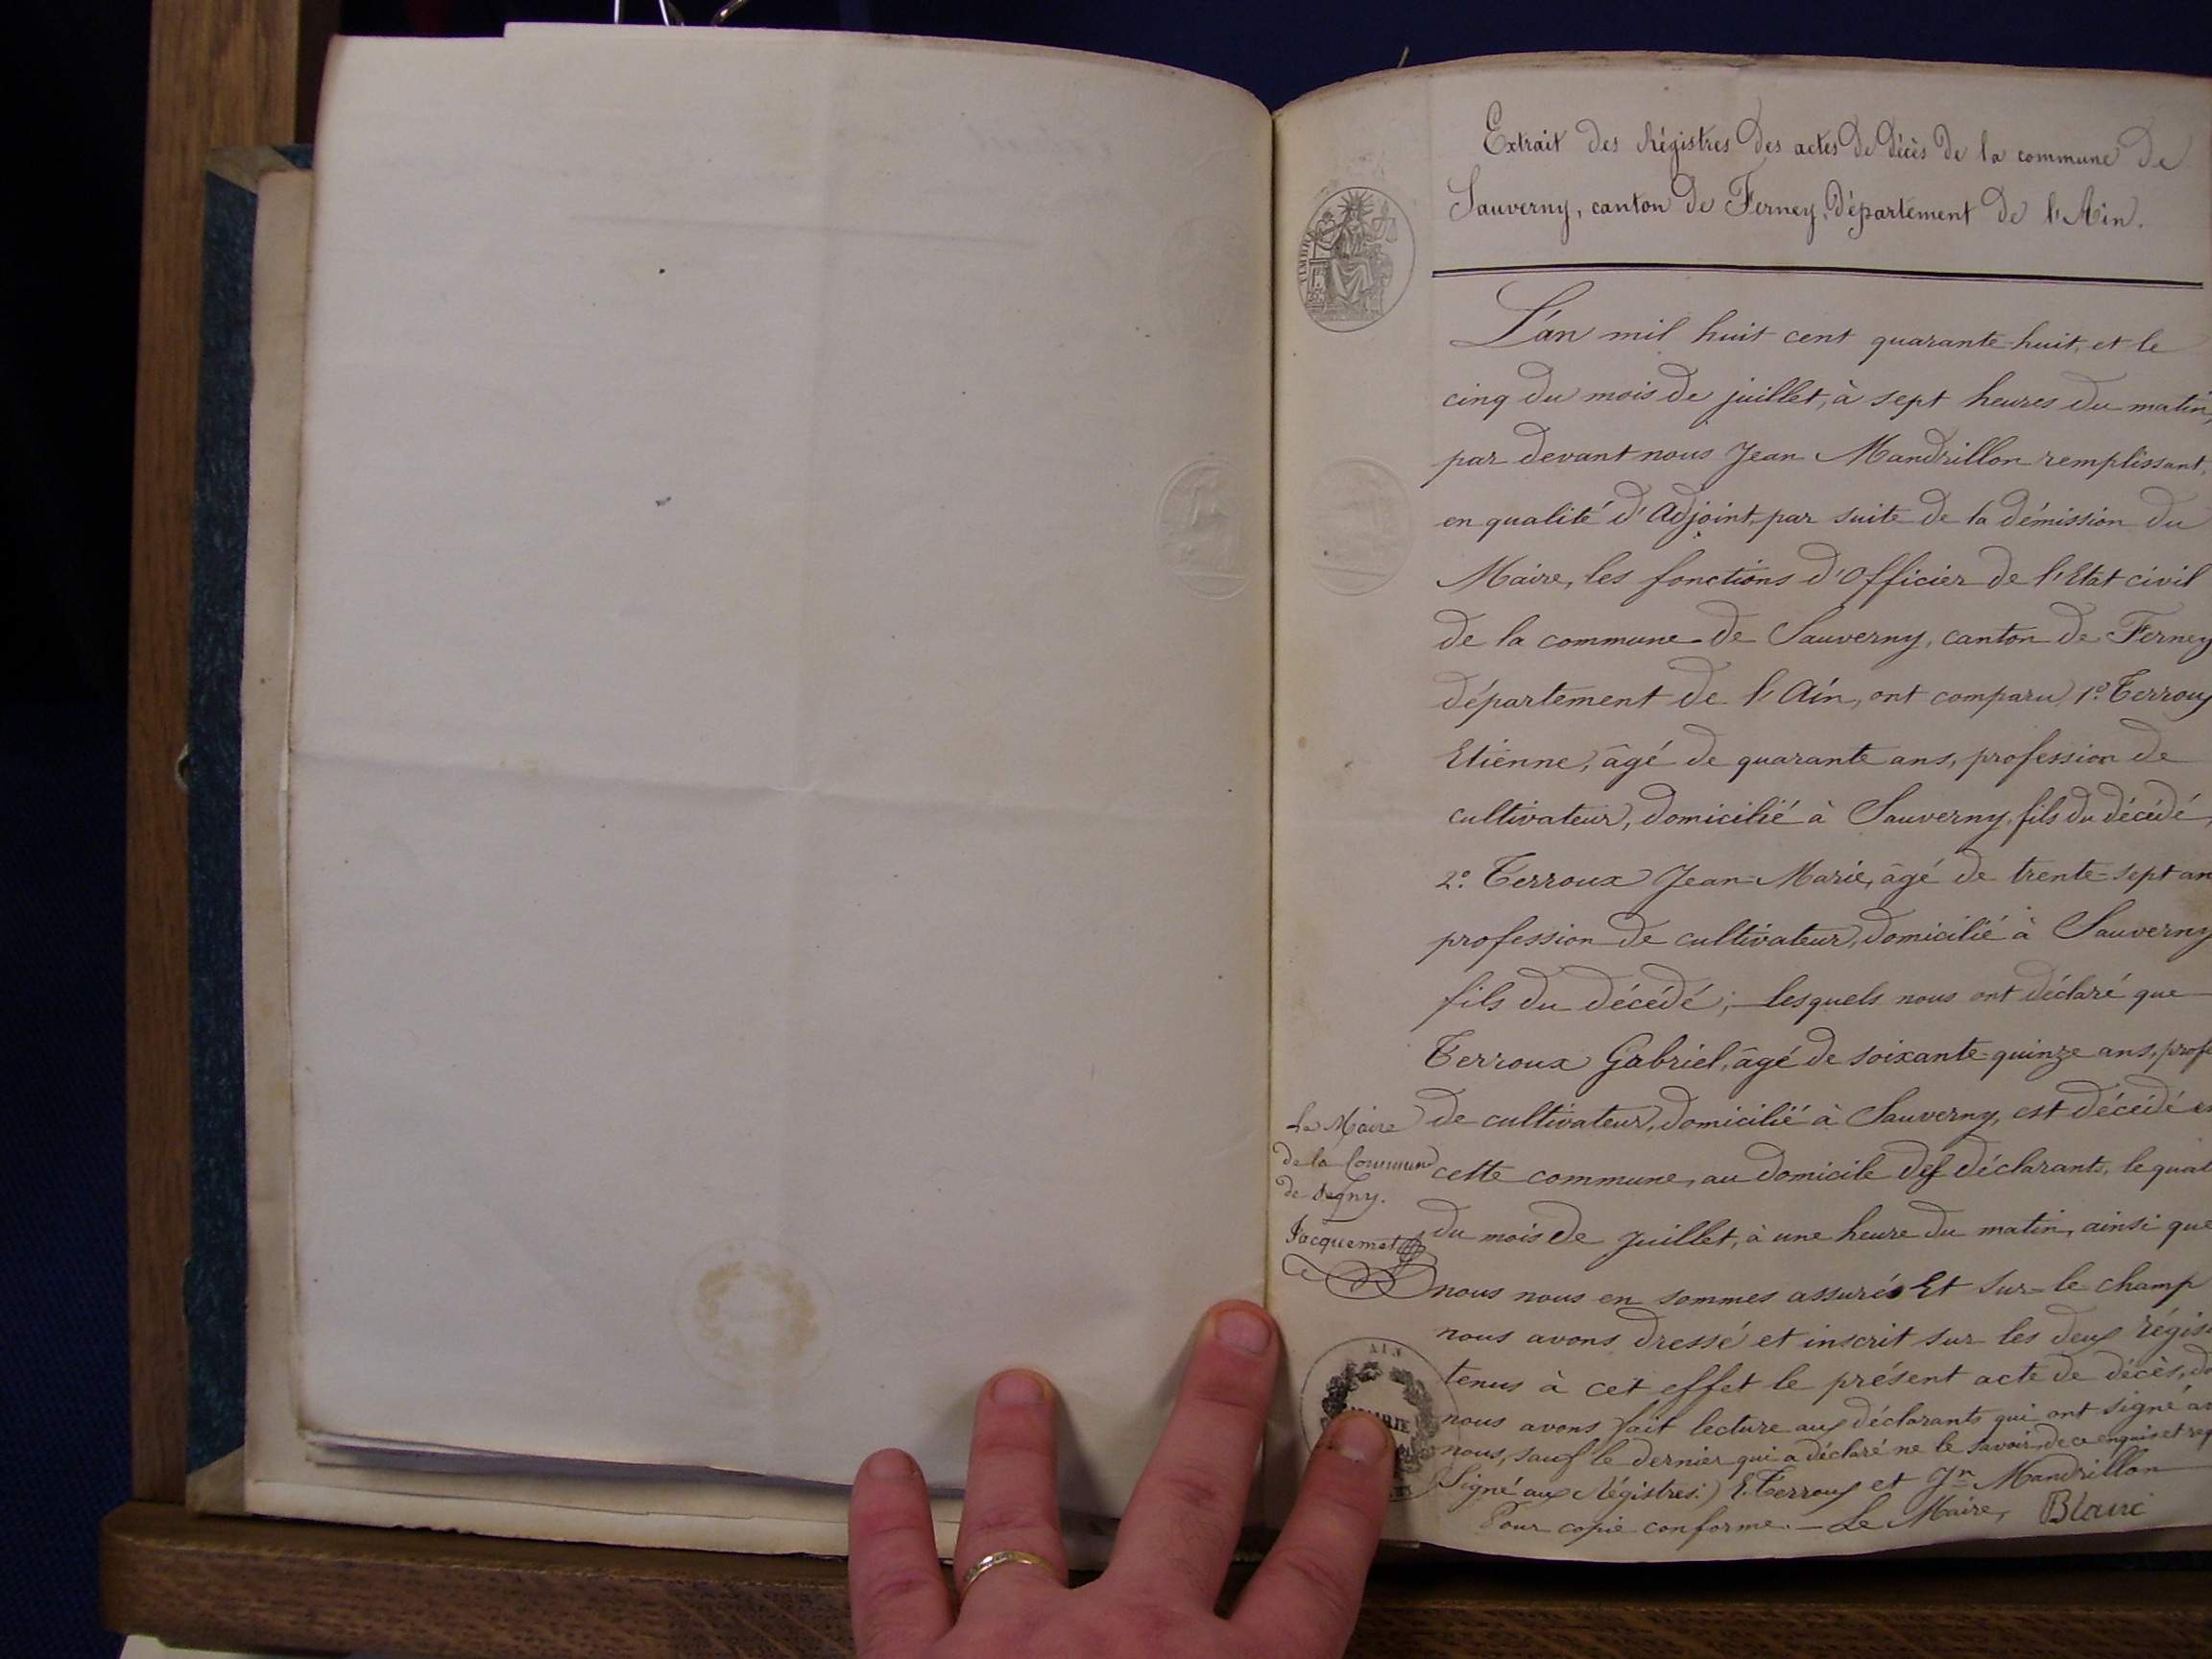 Extrait des Régistres des actes de décès de la commune de
Sauverny, canton de Ferney, Département de l'Ain.
TIMBRE
L'an mil huit cent quarante-huit, et le
cinq du mois de juillet, à sept heures du matin,
par devant nous Jean Mandrillon remplissant,
en qualité d'Adjoint, par suite de la démission du
Maire, les fonctions d'Officier de l'Etat civil
de la commune de Sauverny, canton de Ferney
département de l'Ain, ont comparu 1.º Terroux
Etienne, âgé de quarante ans, profession de
cultivateur, domicilié à Sauverny, fils du décédé,
2.º Terroux Jean-Marie, âgé de trente-sept an
profession de cultivateur, domicilié à Sauverny
fils du décédé; lesquels nous ont déclaré que
Terroux Gabriel, âgé de soixante-quinze ans, profe
de cultivateur, domicilié à Sauverny, est décédé en
cette commune, au domicile des déclarants, le quat
du mois de Juillet, à une heure du matin, ainsi que
nous nous en sommes assurés Et sur-le champ
nous avons dressé et inscrit sur les deux régis
tenus à cet effet le présent acte de décès, do
nous avons fait lecture aux déclarants qui ont signé av
nous, sauf le dernier qui a déclaré ne le savoir, de ce enquis et req
Signé aux Régistres:) E. Terroux et Jn Mandrillon
Pour copie conforme. — Le Maire, Blanc
Le Maire
de la Commune
de Segny.
Jacquemet
AIN
MAIRIE